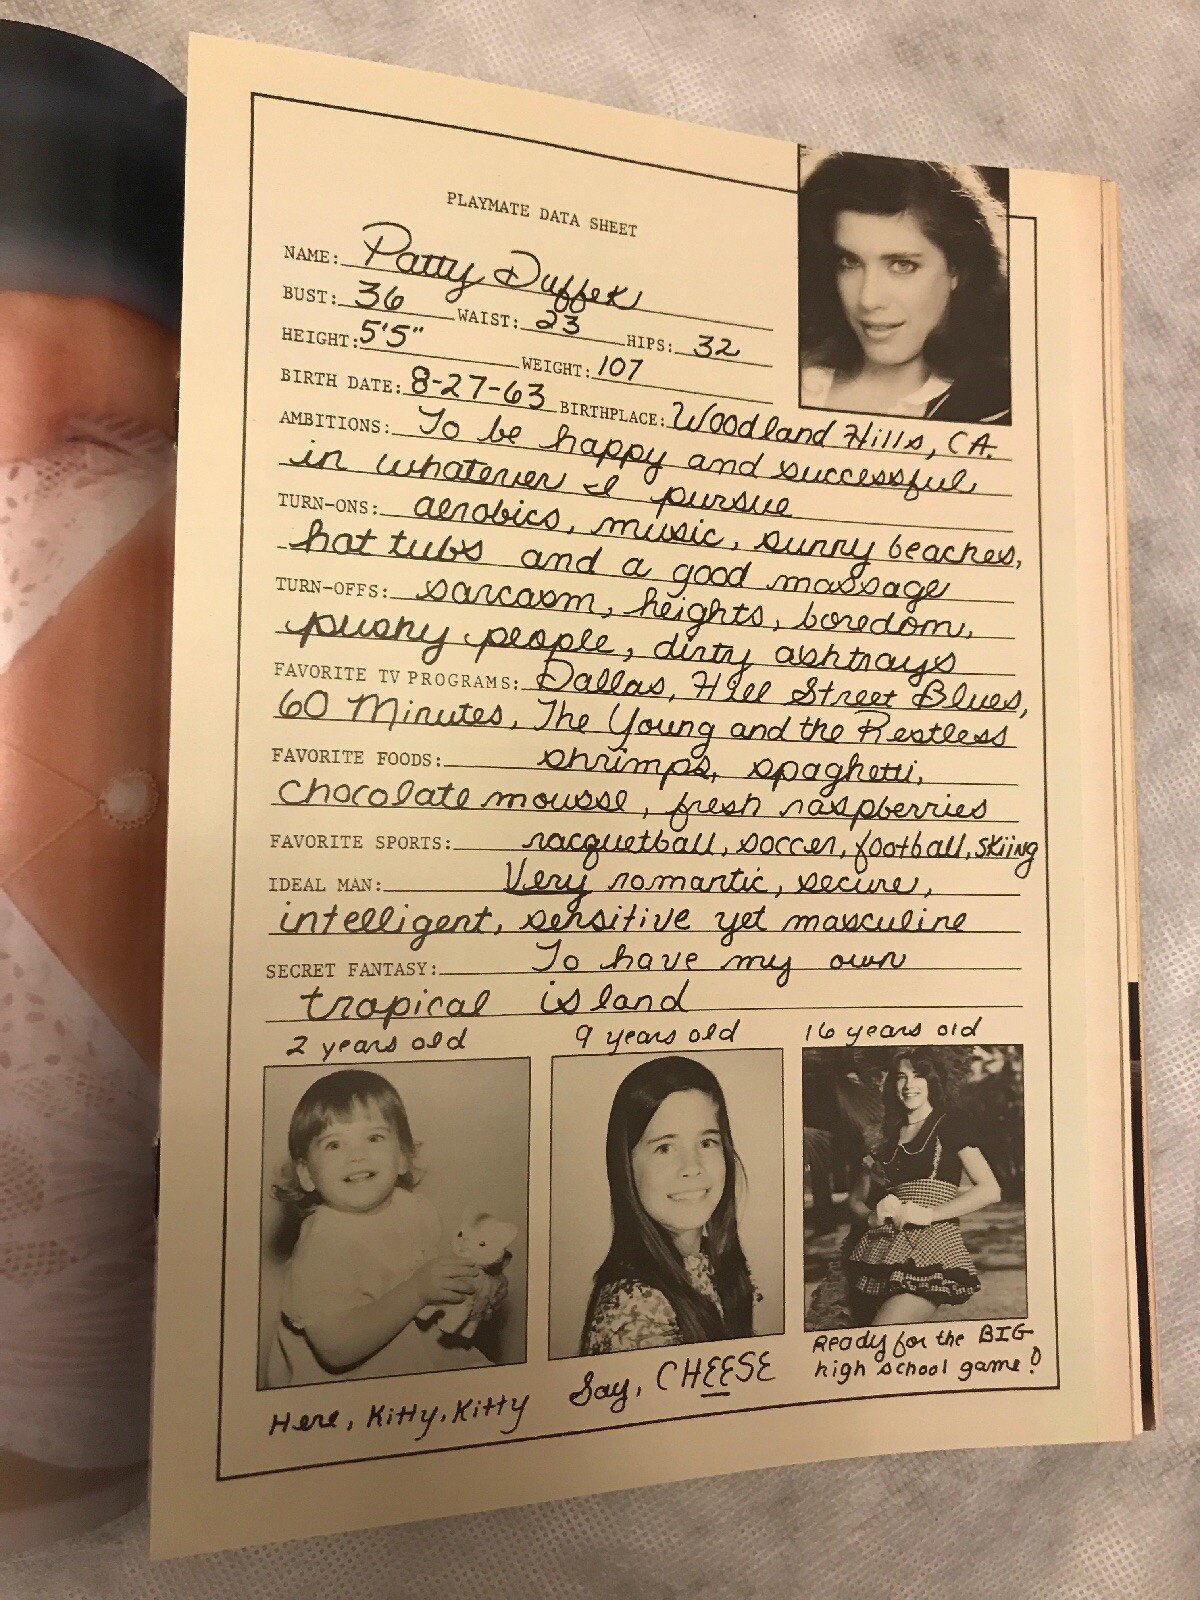 PLAYMATE DATA SHEET
NAME: Patty Duffek
BUST: 36 WAIST: 23 HIPS: 32
HEIGHT: 5'5" WEIGHT: 107
BIRTH DATE: 8-27-63 BIRTHPLACE: Woodland Hills, CA.
AMBITIONS: To be happy and successful
in whatever I pursue
TURN-ONS: aerobics, music, sunny beaches,
hot tubs and a good massage
TURN-OFFS: sarcasm, heights, boredom,
pushy people, dirty ashtrays
FAVORITE TV PROGRAMS: Dallas, Hill Street Blues,
60 Minutes, The Young and the Restless
FAVORITE FOODS: shrimps, spaghetti,
chocolate mousse, fresh raspberries
FAVORITE SPORTS: racquetball, soccer, football, skiing
IDEAL MAN: Very romantic, secure,
intelligent, sensitive yet masculine
SECRET FANTASY: To have my own
tropical island
2 years old
9 years old
16 years old
Here, Kitty, Kitty
Say, CHEESE
Ready for the BIG
high school game!